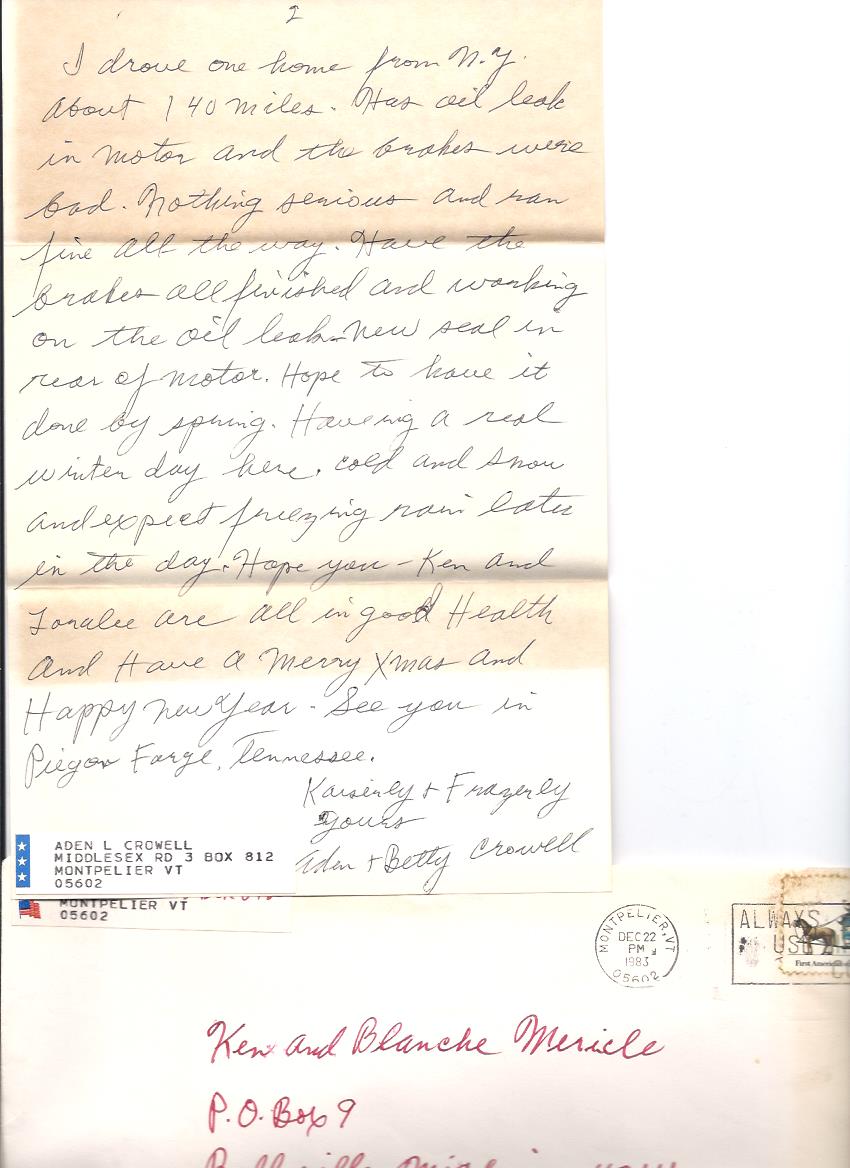 2
I drove one home from N.Y.
About 140 miles. Has oil leak
in motor and the brakes were
bad. Nothing serious and ran
fine all the way. Have the
brakes all finished and working
on the oil leak - New seal in
rear of motor. Hope to have it
done by spring. Haveing a real
winter day here. cold and snow
and expect freezing rain later
in the day. Hope you - Ken and
are all in good Health
and Have a Merry Xmas and
Happy New Year - See you in
Forge, Tennessee.
Kaiserly & Frazerly
yours
Aden + Betty Crowell
ADEN L CROWELL
MIDDLESEX RD 3 BOX 812
MONTPELIER VT
05602
MONTPELIER VT
05602
MONTPELIER, VT
DEC 22
PM
1983
05602
ALWAYS
US
First
Ken and Blanche Mericle
P.O. Box 9